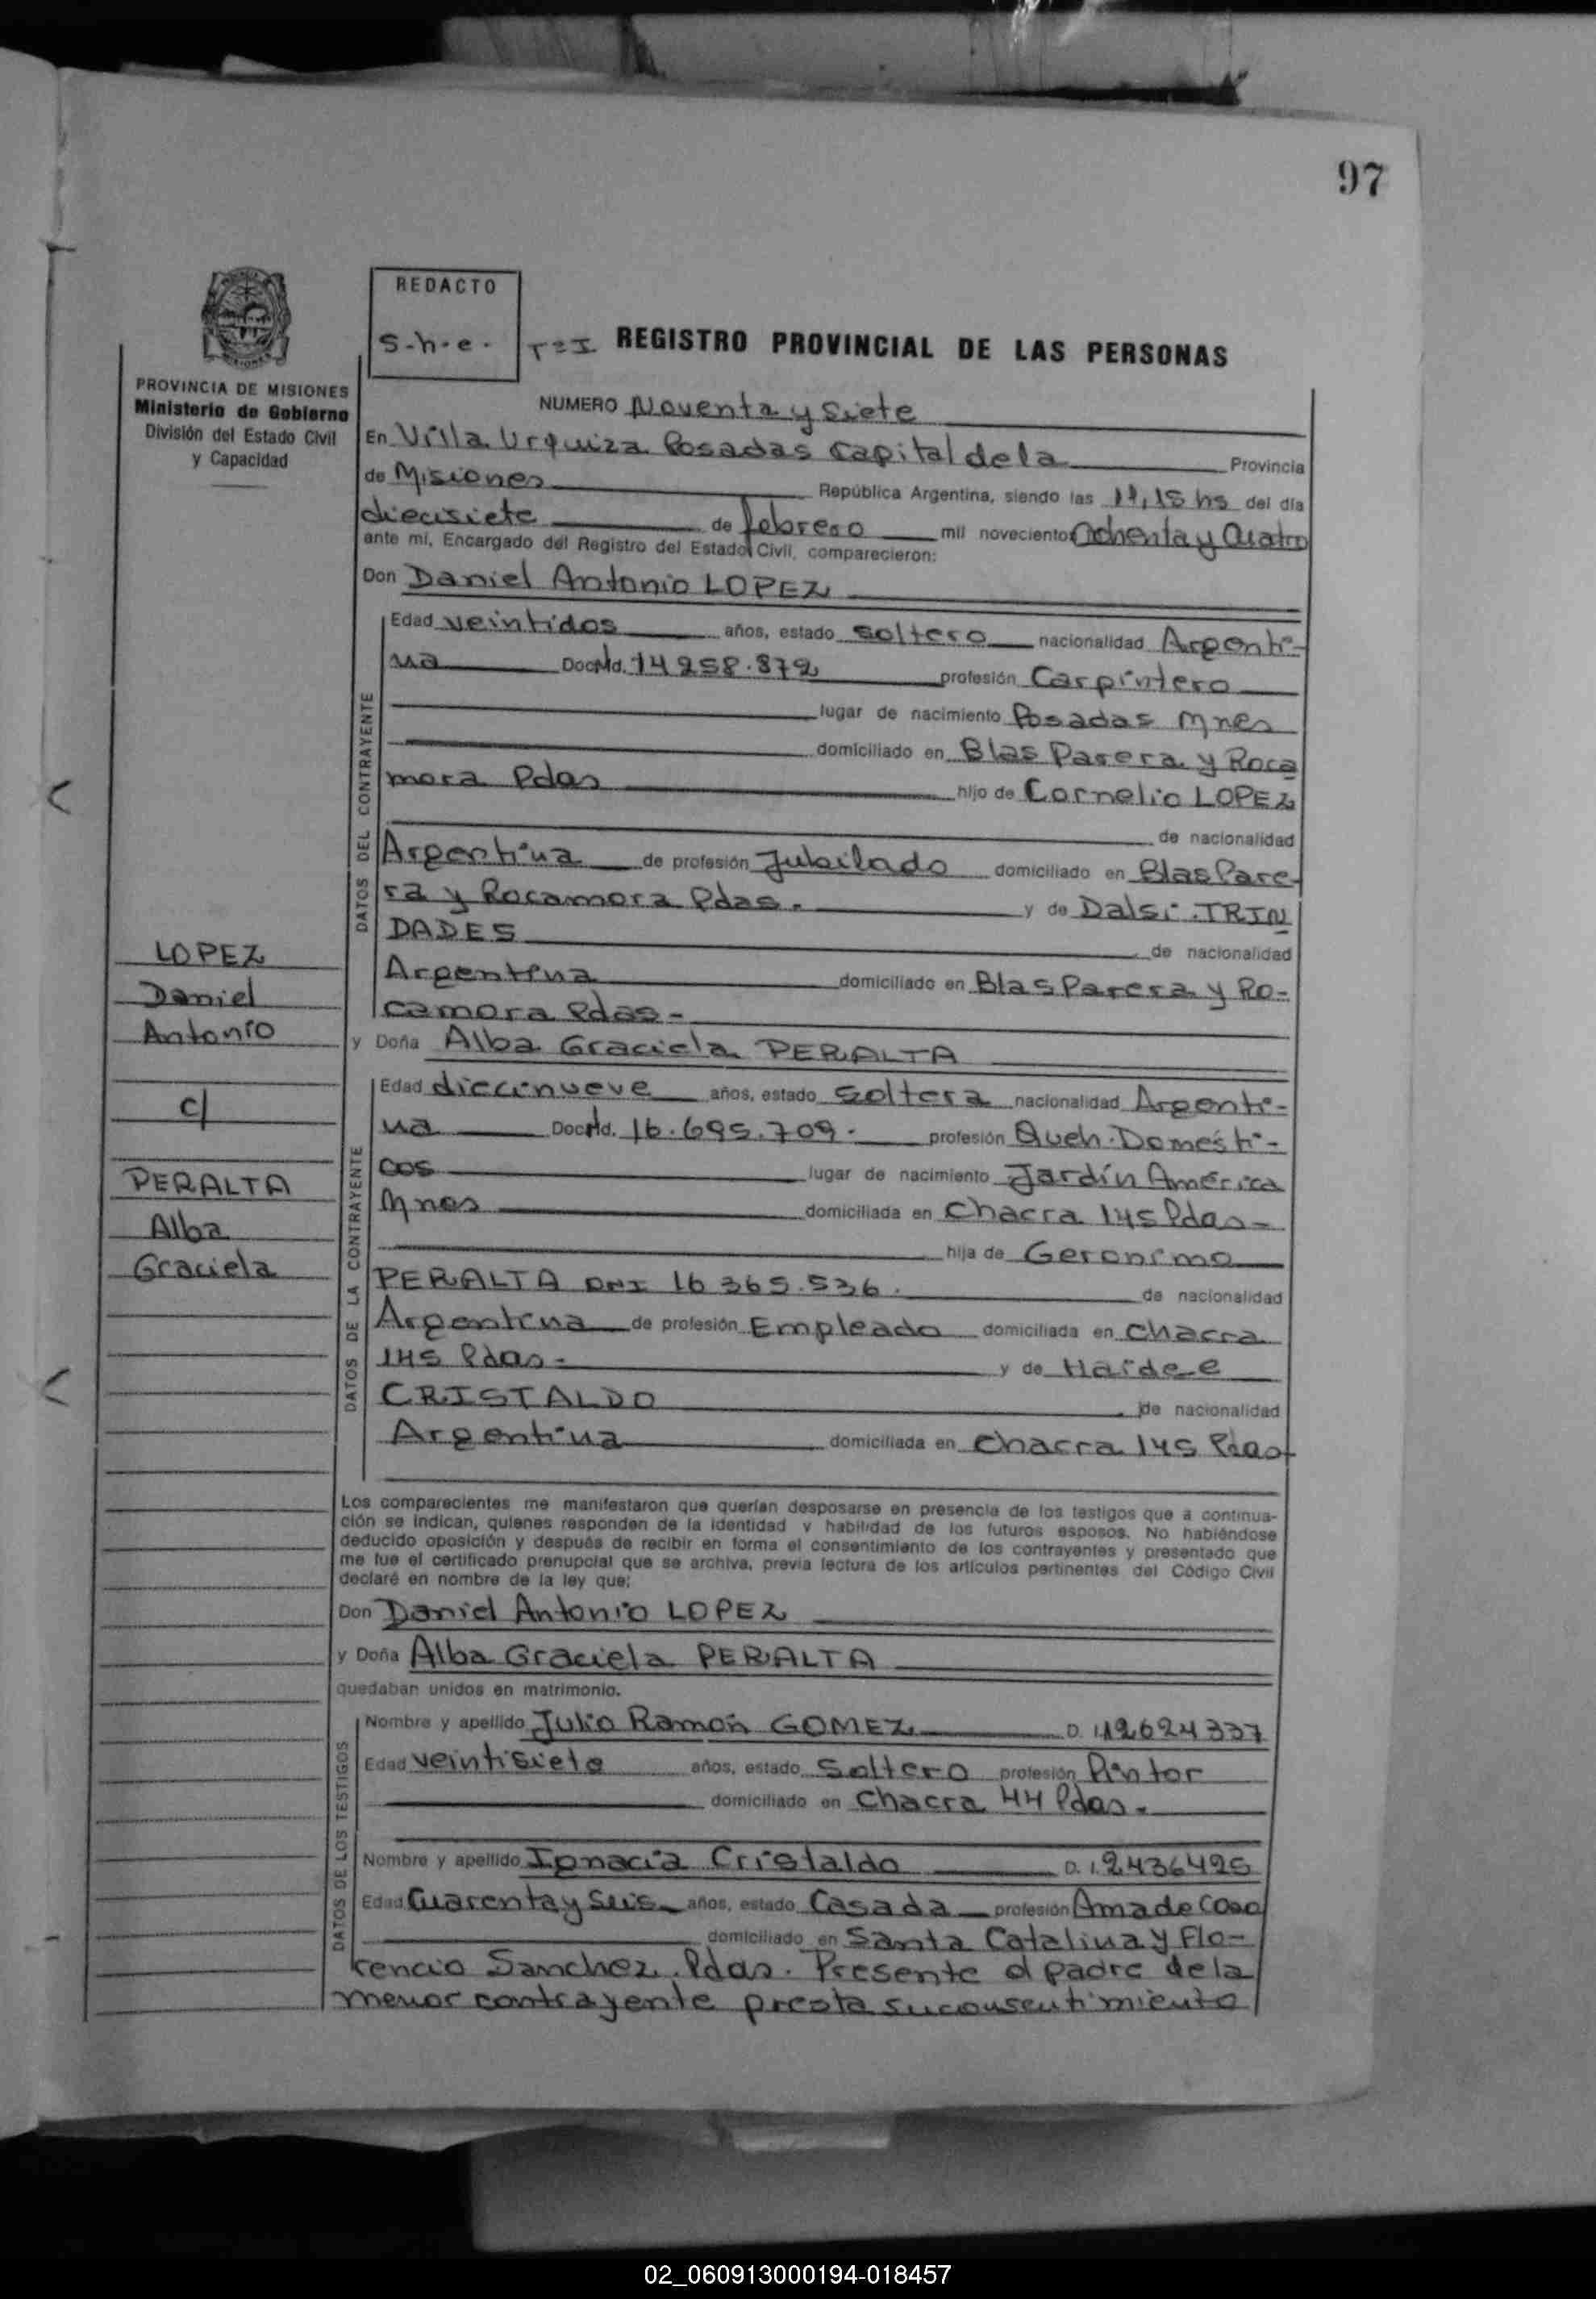 97
REDACTO
S-h-e.
T=I REGISTRO PROVINCIAL DE LAS PERSONAS
PROVINCIA DE MISIONES
Ministerio de Gobierno
División del Estado Civil
y Capacidad
NUMERO Noventa y Siete
En Villa Urquiza Posadas Capital de la Provincia
de Misiones República Argentina, siendo las 11,15 hs del día
diecisiete de febrero mil novecientos Ochenta y Cuatro
ante mí, Encargado del Registro del Estado Civil, comparecieron:
Don Daniel Antonio LOPEZ
DATOS DEL CONTRAYENTE
Edad veintidos años, estado Soltero nacionalidad Argenti-
na Doc. Id. 14258.872 profesión Carpintero
lugar de nacimiento Posadas Mnes
domiciliado en Blas Parera y Roca
mora Pdas hijo de Cornelio LOPEZ
de nacionalidad
Argentina de profesión Jubilado domiciliado en Blas Pare-
ra y Rocamora Pdas.- y de Dalsi TRIN
DADES de nacionalidad
Argentina domiciliado en Blas Parera y Ro-
camora Pdas-
y Doña Alba Graciela PERALTA
DATOS DE LA CONTRAYENTE
Edad diecinueve años, estado Soltera nacionalidad Argenti-
na Doc. Id. 16.695.709. profesión Queh. Domésti-
cos lugar de nacimiento Jardín América
Mnes domiciliada en Chacra 145 Pdas-
hija de Geronimo
PERALTA DNI 16 365.536. de nacionalidad
Argentina de profesión Empleado domiciliada en Chacra
145 Pdas- y de Haidee
CRISTALDO de nacionalidad
Argentina domiciliada en Chacra 145 Pdas
LOPEZ
Daniel
Antonio
c/
PERALTA
Alba
Graciela
Los comparecientes me manifestaron que querían desposarse en presencia de los testigos que a continua-
ción se indican, quienes responden de la identidad y habilidad de los futuros esposos. No habiéndose
deducido oposición y después de recibir en forma el consentimiento de los contrayentes y presentado que
me fue el certificado prenupcial que se archiva, previa lectura de los artículos pertinentes del Código Civil
declaré en nombre de la ley que:
Don Daniel Antonio LOPEZ
y Doña Alba Graciela PERALTA
quedaban unidos en matrimonio.
DATOS DE LOS TESTIGOS
Nombre y apellido Julio Ramón GOMEZ D. I. 12624337
Edad veintisiete años, estado Soltero profesión Pintor
domiciliado en Chacra 44 Pdas.-
Nombre y apellido Ignacia Cristaldo D. I. 2436425
Edad Cuarenta y Seis años, estado Casada profesión Ama de Casa
domiciliado en Santa Catalina y Flo-
rencio Sanchez. Pdas. Presente el padre de la
menor contrayente presta su consentimiento
02_060913000194-018457